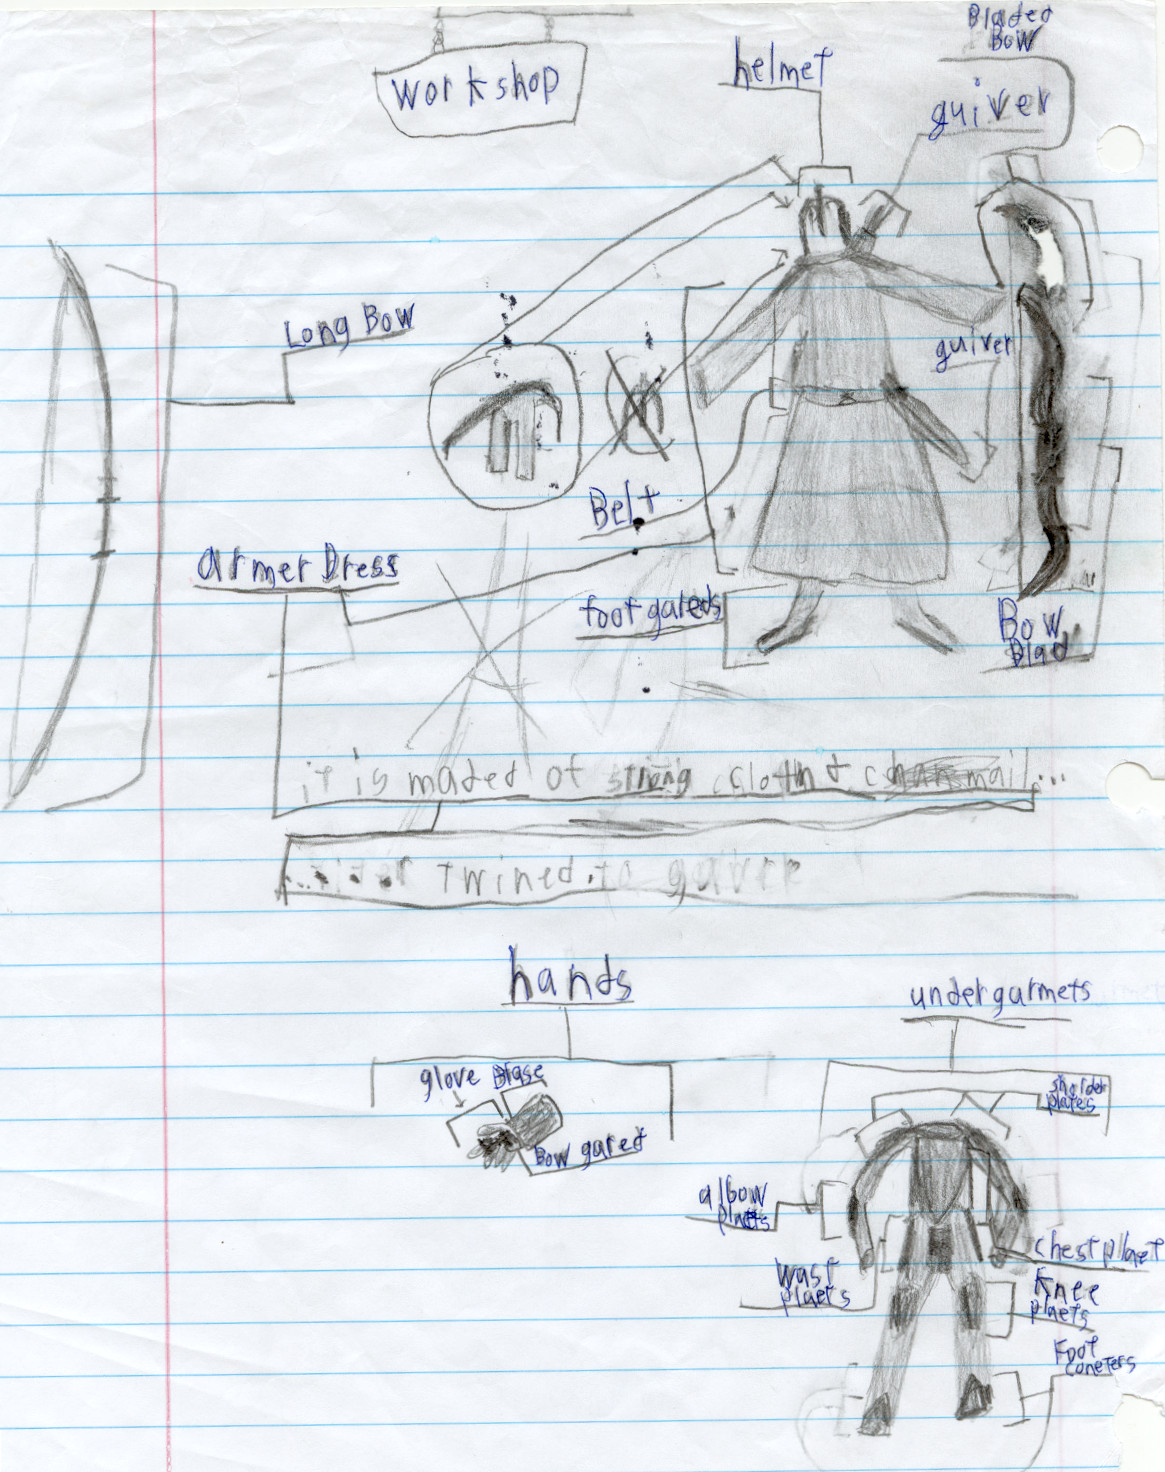 workshop
helmet
Bladed
Bow
quiver
Long Bow
quiver
Belt
armer Dress
foot gareds
Bow
Blad
it is maded of strong cloth & chanmail...
twined to
hands
undergarmets
glove Brase
Bow gared
sholder
plates
albow
plaets
chest plaet
wast
plaets
Knee
plaets
Foot
coneters